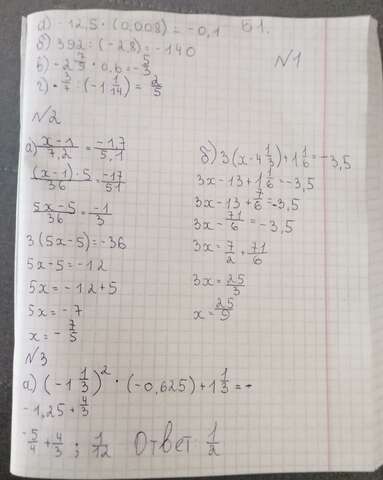 а) -12,5 · (0,008) = -0,1 б1.
б) 392 : (-2,8) = -140
№1
в) -2 7/9 · 0,6 = -5/3
г) - 3/7 : (-1 1/14) = 2/5
№2
а) (x-1)/7,2 = (-1,7)/5,1
((x-1)·5)/36 = -17/51
(5x-5)/36 = -1/3
3(5x-5) = -36
5x-5 = -12
5x = -12+5
5x = -7
x = -7/5
б) 3(x-4 1/3)+1 1/6 = -3,5
3x-13+1 1/6 = -3,5
3x-13+7/6 = -3,5
3x-71/6 = -3,5
3x = 7/2 + 71/6
3x = 25/3
x = 25/9
№3
а) (-1 1/3)² · (-0,625)+1 1/3 = -
-1,25+4/3
-5/4 + 4/3 ; 1/12 Ответ: 1/2